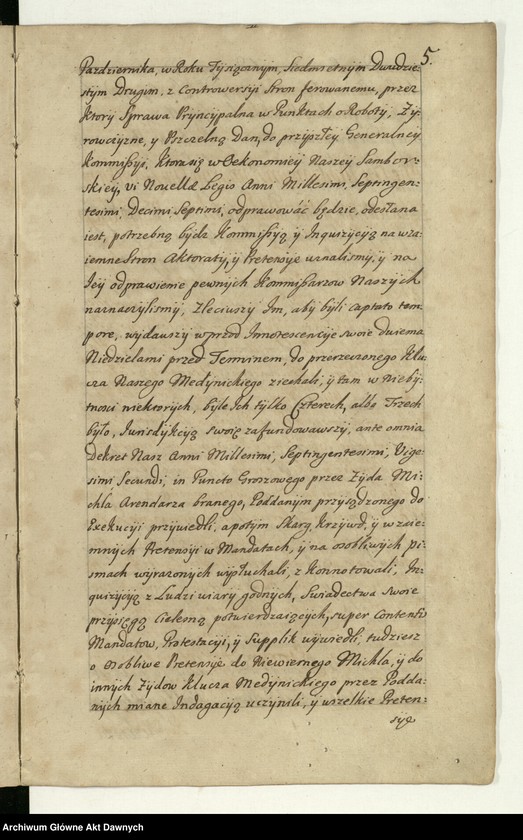 5.
Pazdziernika, w Roku Tysiącznym, Siedmsetnÿm Dwudzie=
stÿm Drugim, z Controwersÿi Stron ferowanemu, przez
Ktorÿ Sprawa Prÿncÿpalna w Punktach o Robotÿ, Żÿ=
rowczÿzne, y Pszczelną Dań, do przÿszłeÿ Generalneÿ
Kommissÿi, Ktora się w Oekonomieÿ Naszeÿ Sambor=
skieÿ, vi Novellæ Legis Anni Millesimi, Septingen=
tesimi, Decimi Septimi, odprawować będzie, odesłana
iest, potrzebną bÿdz Kommissÿą ÿ Inquizÿcÿą na wza=
iemne Stron Aktoratÿ, ÿ Pretensÿe uznalismÿ, ÿ na
Ieÿ odprawienie pewnÿch Kommissarzow Naszÿch
naznaczÿlismÿ, Zleciwszÿ Im, abÿ bÿli captato tem=
pore, wÿdawszÿ wprzod Innotescencÿe swoie dwiema
Niedzielami przed Terminem, do przerzeczonego Klu=
cza Naszego Medÿnickiego ziechali, ÿ tam w niebÿ=
tnosci niektorÿch, bÿle Ich tÿlko Czterech, albo Trzech
bÿło, Iurisdÿkcÿą swoię zafundowawszÿ, ante omnia
Dekret Nasz Anni Millesimi, Septingentesimi, Vige=
simi Secundi, in Puncto Groszowego przez Zÿda Mi=
chla Arendarza branego, Poddanÿm przÿsądzonego do
Exekucÿi przÿwiedli, a potÿm Skarg, Krzÿwd, ÿ wzaie=
mnÿch Pretensÿi w Mandatach, ÿ na osobliwÿch pi=
smach wÿrazonÿch wÿsłuchali, z Konnotowali, In=
quizÿcÿą z Ludzi wiarÿ godnÿch, Swiadectwa swoie
przÿsięgą cielesną potwierdzaiącÿch, super Contentis
Mandatow, Protestacÿi, ÿ Supplik wÿwiedli, tudziesz
o osobliwe Pretensÿe do Niewiernego Michla, ÿ do
innÿch Zÿdow Klucza Medÿnickiego przez Podda=
nÿch miane Indagacÿą uczÿnili, y wszelkie Preten=
sye
Archiwum Główne Akt Dawnych